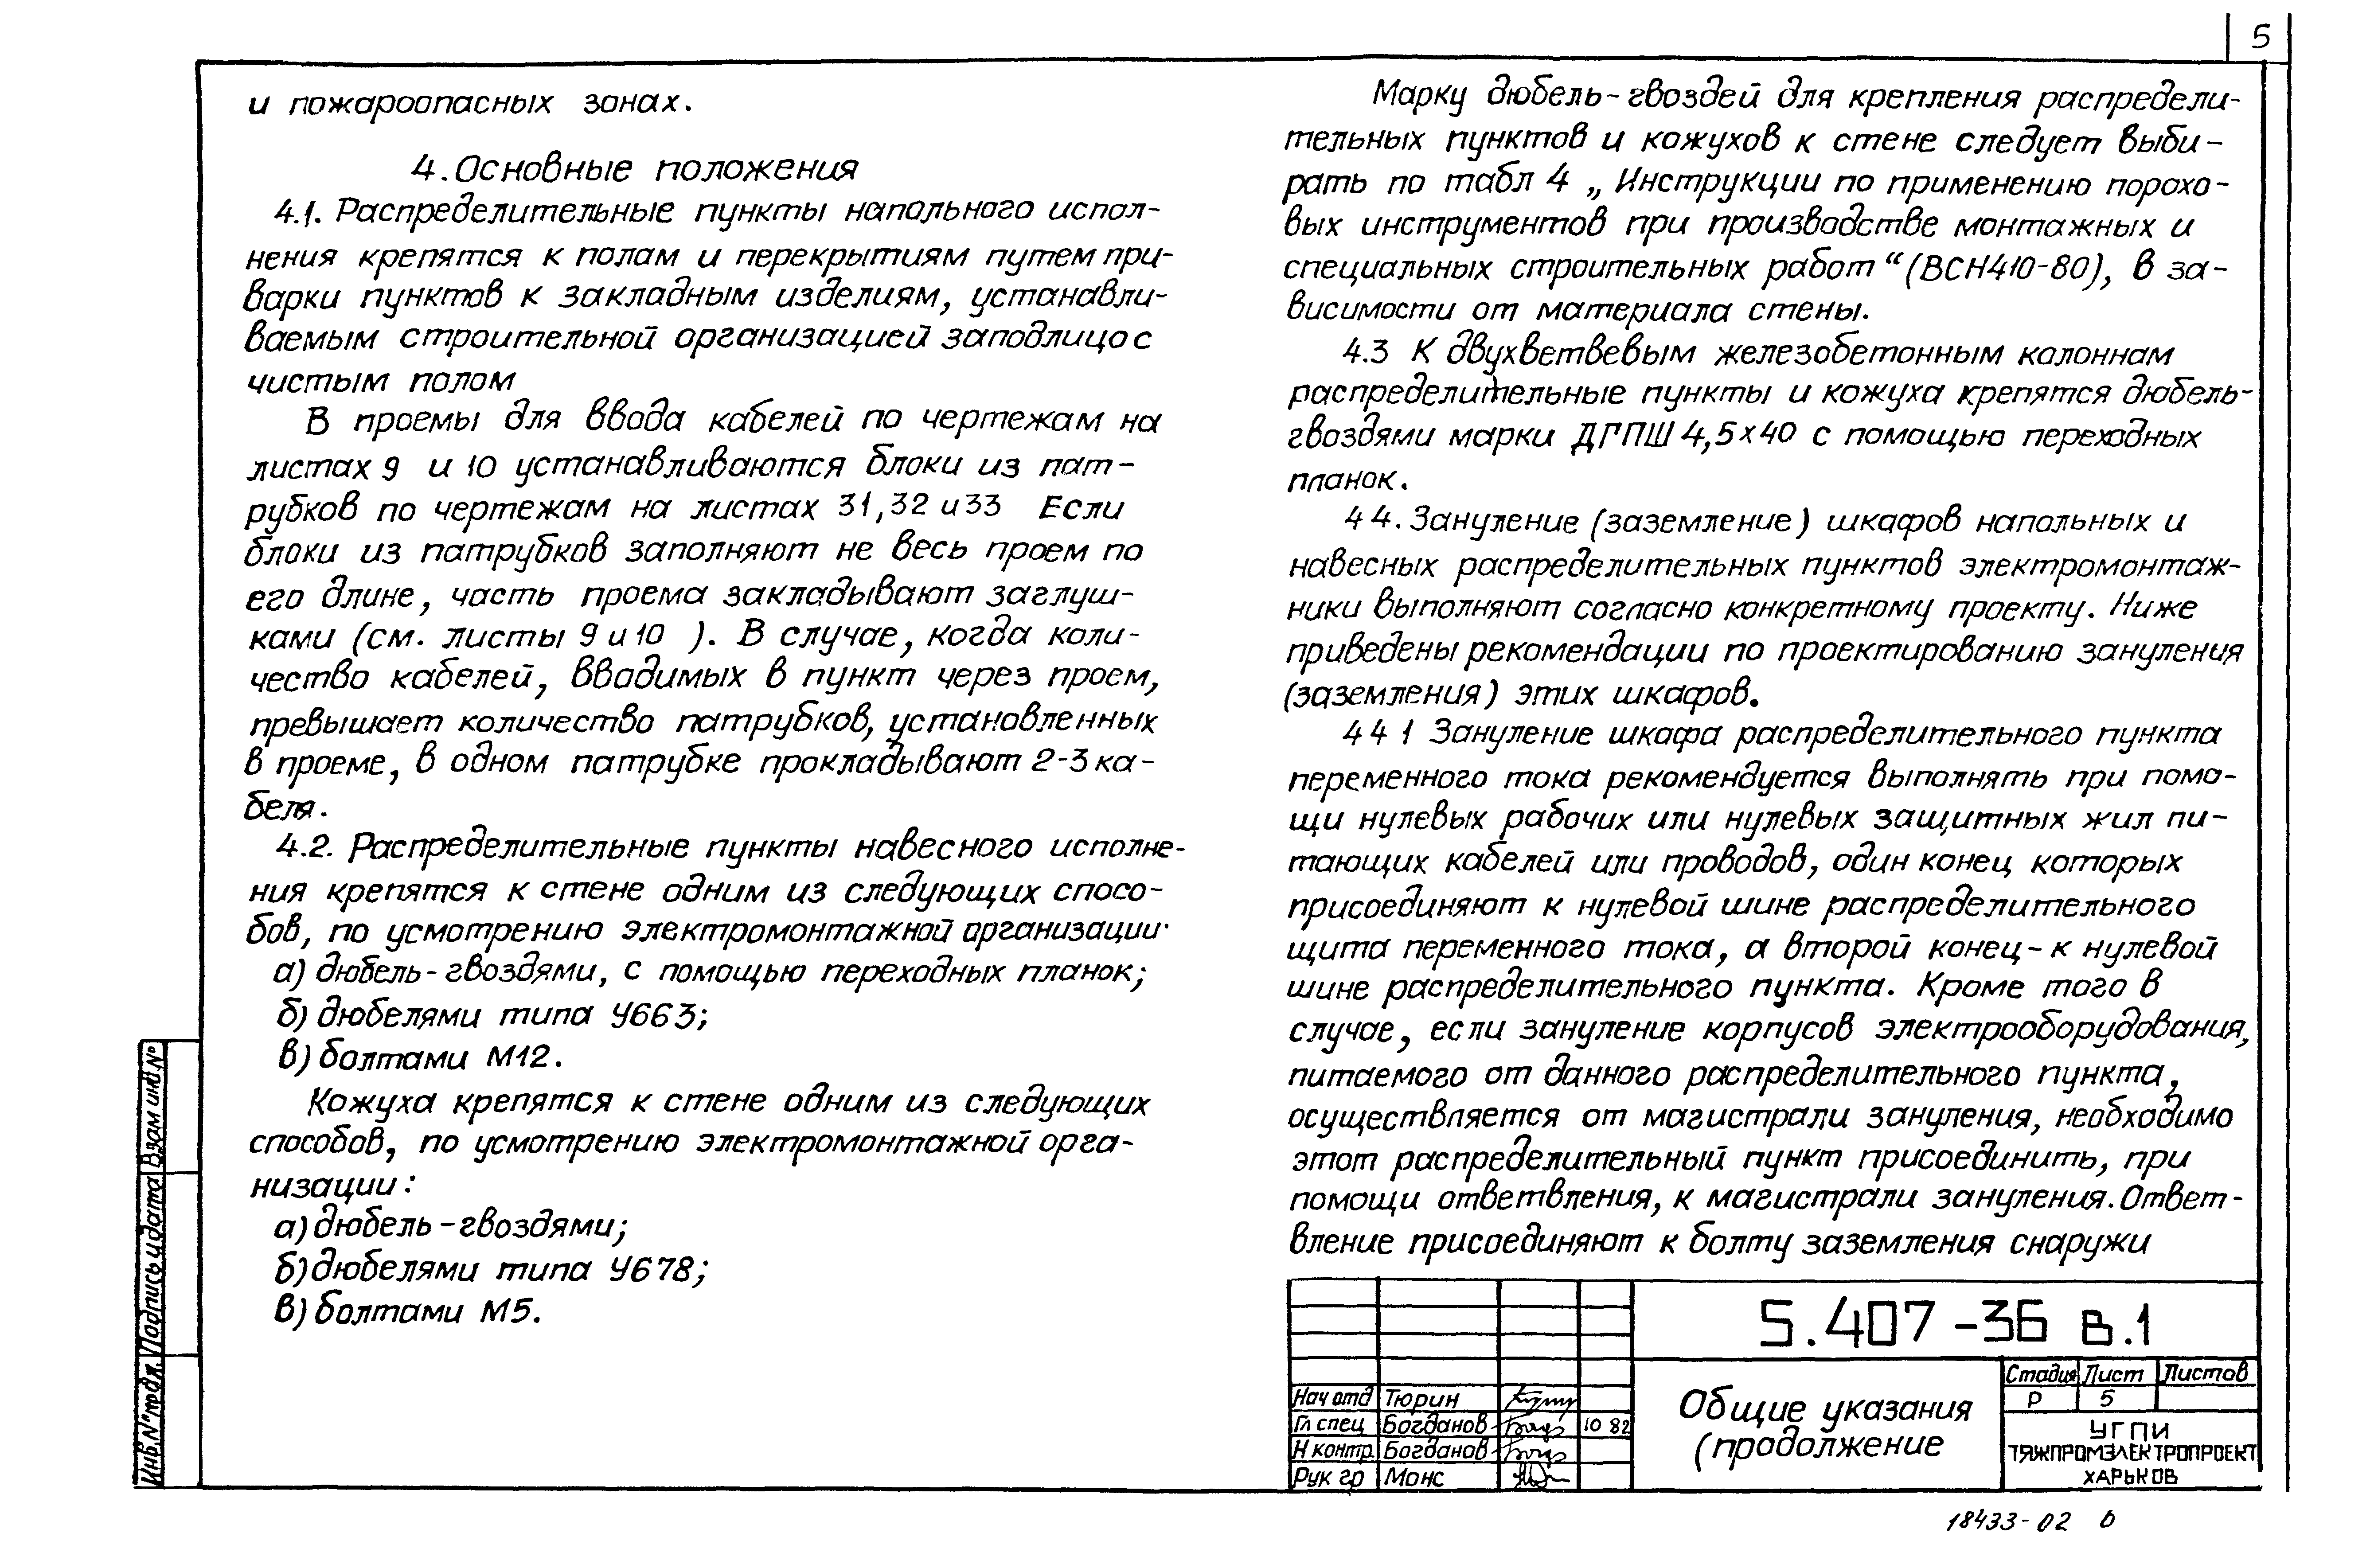 5
и пожароопасных зонах.
4. Основные положения
4.1. Распределительные пункты напольного испол-
нения крепятся к полам и перекрытиям путем при-
варки пунктов к закладным изделиям, устанавли-
ваемым строительной организацией заподлицо с
чистым полом
В проемы для ввода кабелей по чертежам на
листах 9 и 10 устанавливаются блоки из пат-
рубков по чертежам на листах 31, 32 и 33 Если
блоки из патрубков заполняют не весь проем по
его длине, часть проема закладывают заглуш-
ками (см. листы 9 и 10 ). В случае, когда коли-
чество кабелей, вводимых в пункт через проем,
превышает количество патрубков, установленных
в проеме, в одном патрубке прокладывают 2-3 ка-
беля.
4.2. Распределительные пункты навесного исполне-
ния крепятся к стене одним из следующих спосо-
бов, по усмотрению электромонтажной организации·
а) дюбель-гвоздями, с помощью переходных планок;
б) дюбелями типа У663;
в) болтами М12.
Кожуха крепятся к стене одним из следующих
способов, по усмотрению электромонтажной орга-
низации:
а) дюбель-гвоздями;
б) дюбелями типа У678;
в) болтами М5.
Марку дюбель-гвоздей для крепления распредели-
тельных пунктов и кожухов к стене следует выби-
рать по табл 4 „Инструкции по применению порохо-
вых инструментов при производстве монтажных и
специальных строительных работ“ (ВСН410-80), в за-
висимости от материала стены.
4.3 К двухветвевым железобетонным колоннам
распределительные пункты и кожуха крепятся дюбель-
гвоздями марки ДГПШ 4,5х40 с помощью переходных
планок.
4 4. Зануление (заземление) шкафов напольных и
навесных распределительных пунктов электромонтаж-
ники выполняют согласно конкретному проекту. Ниже
приведены рекомендации по проектированию зануления
(заземления) этих шкафов.
4 4 1 Зануление шкафа распределительного пункта
переменного тока рекомендуется выполнять при помо-
щи нулевых рабочих или нулевых защитных жил пи-
тающих кабелей или проводов, один конец которых
присоединяют к нулевой шине распределительного
щита переменного тока, а второй конец - к нулевой
шине распределительного пункта. Кроме того в
случае, если зануление корпусов электрооборудования,
питаемого от данного распределительного пункта,
осуществляется от магистрали зануления, необходимо
этот распределительный пункт присоединить, при
помощи ответвления, к магистрали зануления. Ответ-
вление присоединяют к болту заземления снаружи
Взам инв. №
Подпись и дата
Инв. № подл.
5.407-36 в.1
Нач отд Тюрин
Гл спец Богданов 10 82
Н контр. Богданов
Рук гр Монс
Общие указания
(продолжение
Стадия Лист Листов
Р 5
УГПИ
ТЯЖПРОМЭЛЕКТРОПРОЕКТ
ХАРЬКОВ
18433-02 6